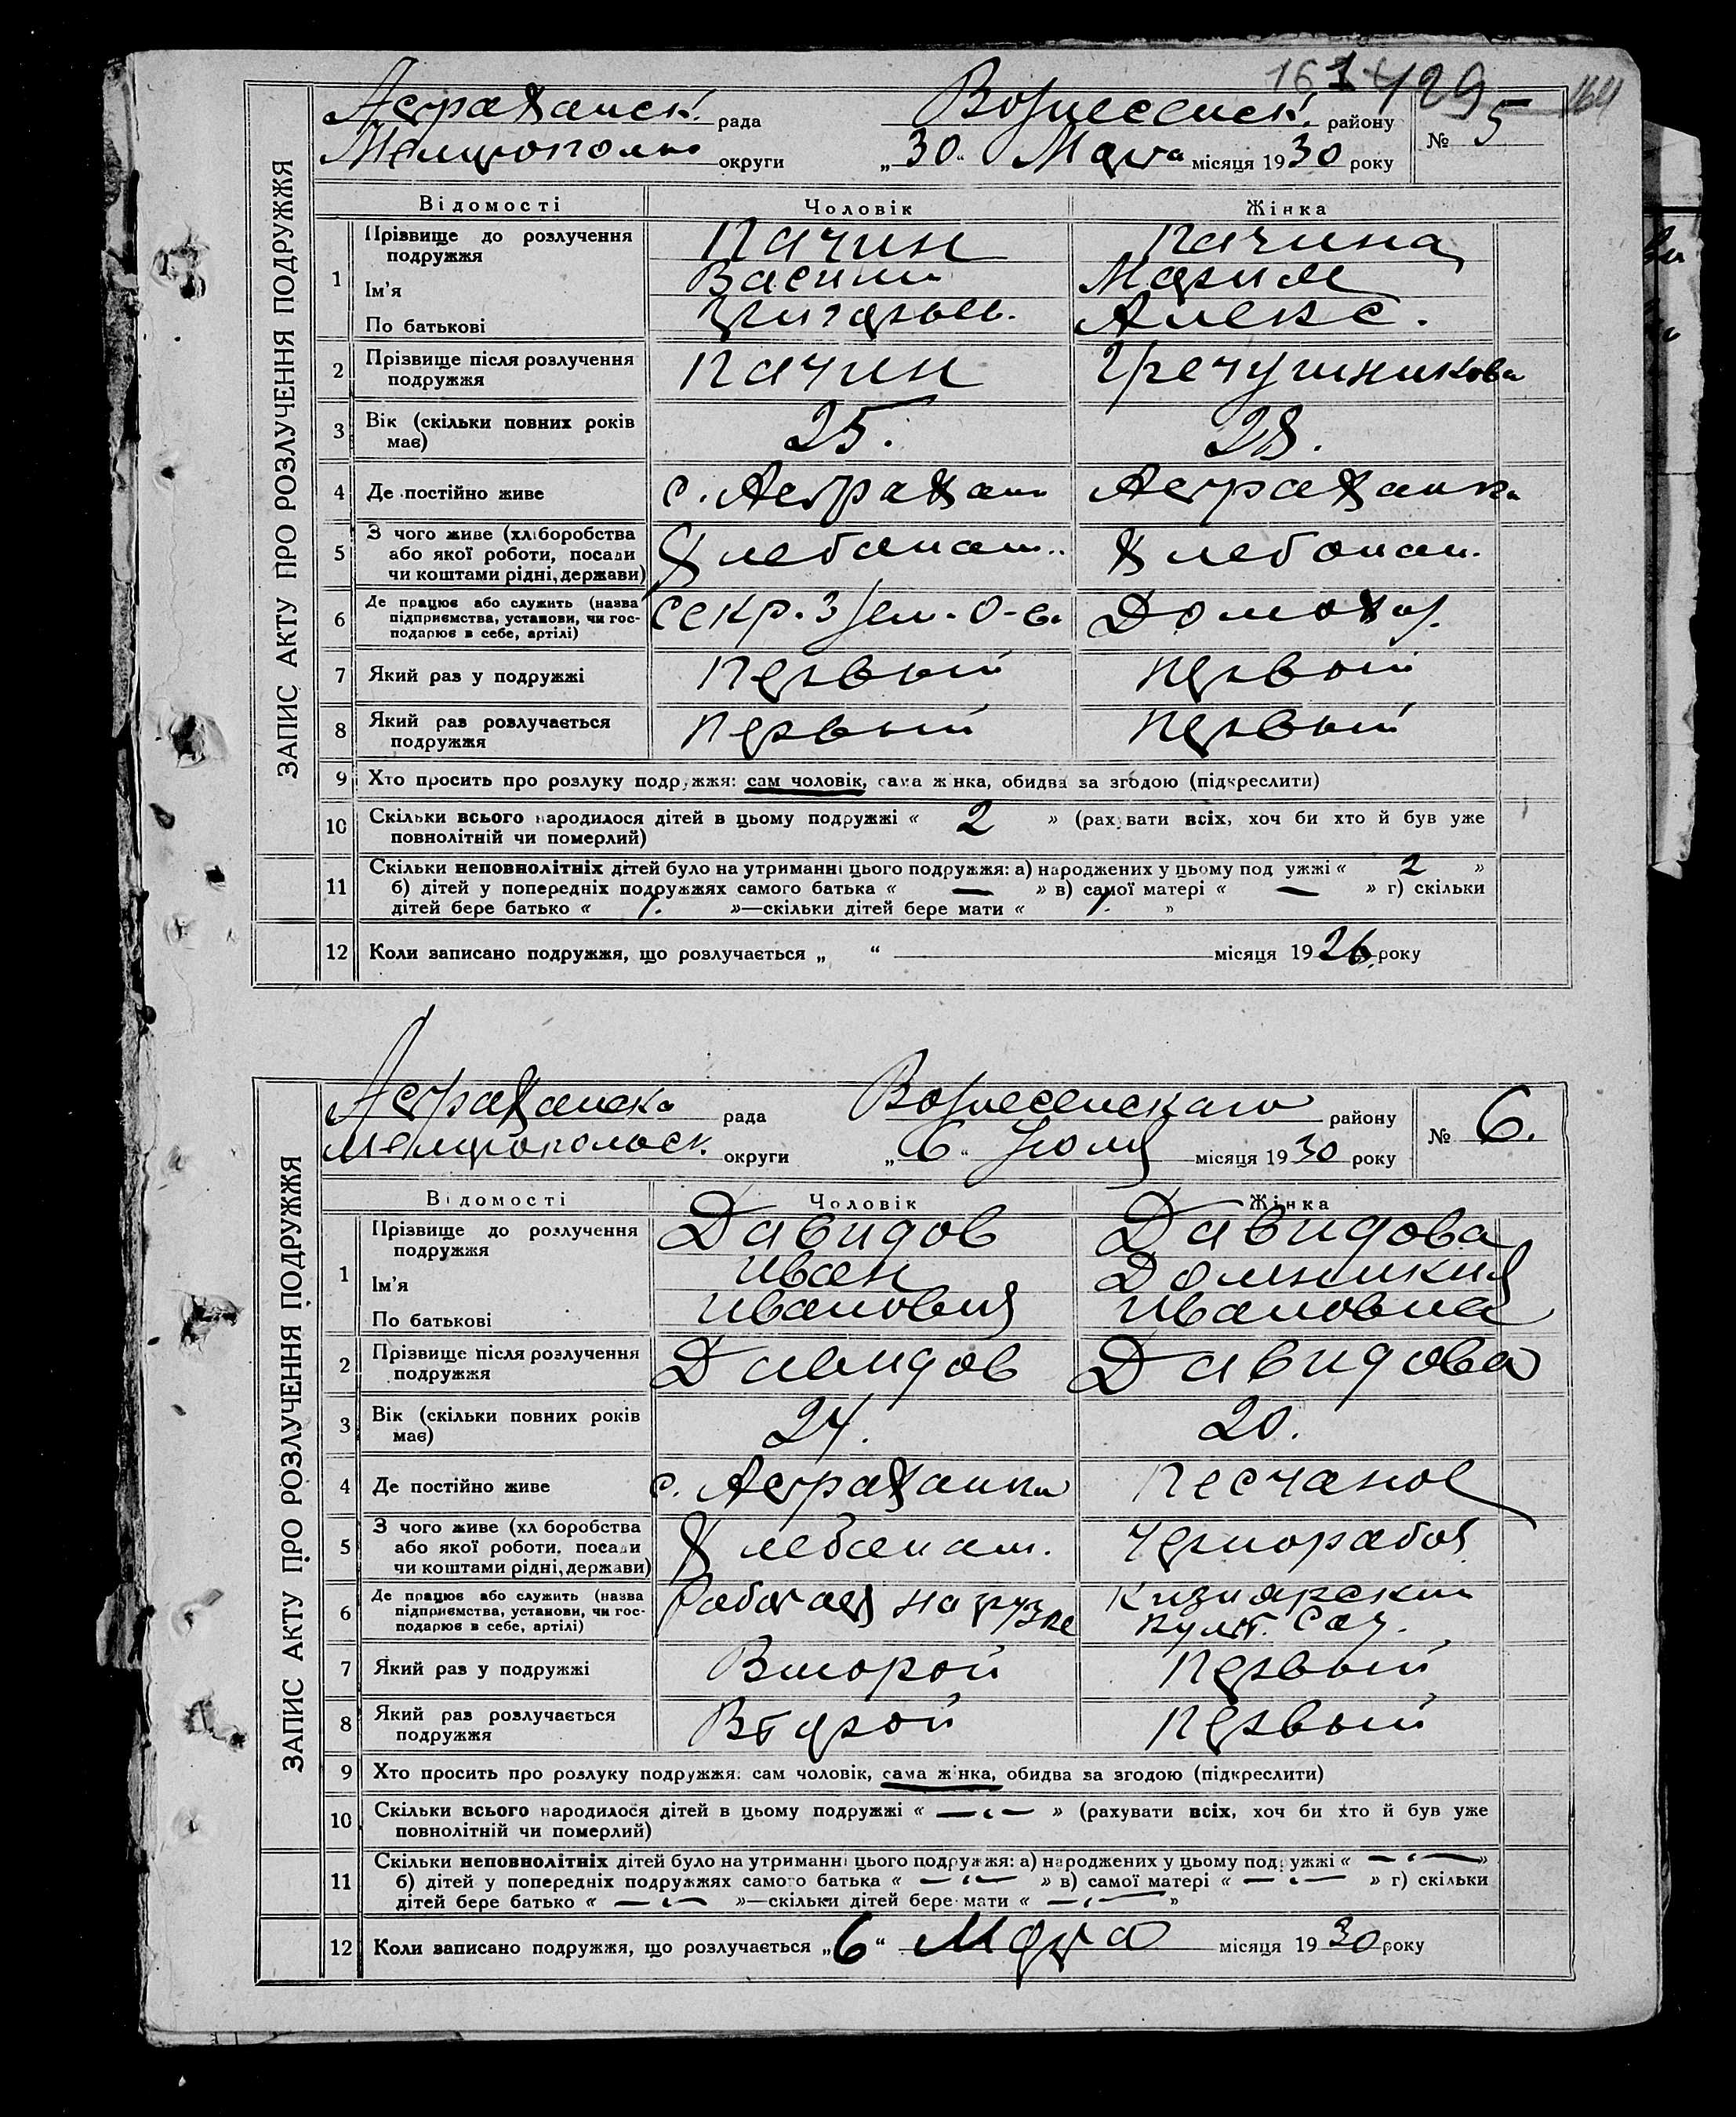 161 429 164
Астраханск. рада Вознесенск. району № 5
Мелитополь округи „30“ Марта місяця 1930 року
ЗАПИС АКТУ ПРО РОЗЛУЧЕННЯ ПОДРУЖЖЯ
Відомості Чоловік Жінка
1 Прізвище до розлучення подружжя Пачин Пачина
Ім'я Васили Мария
По батькові Григорьев. Алекс.
2 Прізвище після розлучення подружжя Пачин Гречушникова
3 Вік (скільки повних років має) 25. 28.
4 Де постійно живе с. Астрахан Астраханка
5 З чого живе (хліборобства або якої роботи, посади чи коштами рідні, держави) Хлебопаш.. Хлебопаш.
6 Де працює або служить (назва підприємства, установи, чи господарює в себе, артілі) Секр. Зем. О-ва Домохоз.
7 Який раз у подружжі Первый Первый
8 Який раз розлучається подружжя Первый Первый
9 Хто просить про розлуку подружжя: сам чоловік, сама жінка, обидва за згодою (підкреслити)
10 Скільки всього народилося дітей в цьому подружжі « 2 » (рахувати всіх, хоч би хто й був уже
повнолітній чи померлий)
11 Скільки неповнолітніх дітей було на утриманні цього подружжя: а) народжених у цьому подружжі « 2 »
б) дітей у попередніх подружжях самого батька « — » в) самої матері « — » г) скільки
дітей бере батько « 1. »—скільки дітей бере мати « 1. »
12 Коли записано подружжя, що розлучається „ “ місяця 1926 року
Астраханска рада Вознесенскаго району № 6.
Мелитопольск. округи „6“ Июля місяця 1930 року
ЗАПИС АКТУ ПРО РОЗЛУЧЕННЯ ПОДРУЖЖЯ
Відомості Чоловік Жінка
1 Прізвище до розлучення подружжя Давидов Давидова
Ім'я Иван Домникия
По батькові Иванович Ивановна
2 Прізвище після розлучення подружжя Давидов Давидова
3 Вік (скільки повних років має) 24. 20.
4 Де постійно живе с. Астраханка Песчаное
5 З чого живе (хліборобства або якої роботи, посади чи коштами рідні, держави) Хлебопаш. Чернорабоч.
6 Де працює або служить (назва підприємства, установи, чи господарює в себе, артілі) Рабочая на грузке Кизиярский
культ. Сад.
7 Який раз у подружжі Второй Первый
8 Який раз розлучається подружжя Второй Первый
9 Хто просить про розлуку подружжя: сам чоловік, сама жінка, обидва за згодою (підкреслити)
10 Скільки всього народилося дітей в цьому подружжі « — » (рахувати всіх, хоч би хто й був уже
повнолітній чи померлий)
11 Скільки неповнолітніх дітей було на утриманні цього подружжя: а) народжених у цьому подружжі « — »
б) дітей у попередніх подружжях самого батька « — » в) самої матері « — » г) скільки
дітей бере батько « — »—скільки дітей бере мати « — »
12 Коли записано подружжя, що розлучається „6“ Марта місяця 1930 року